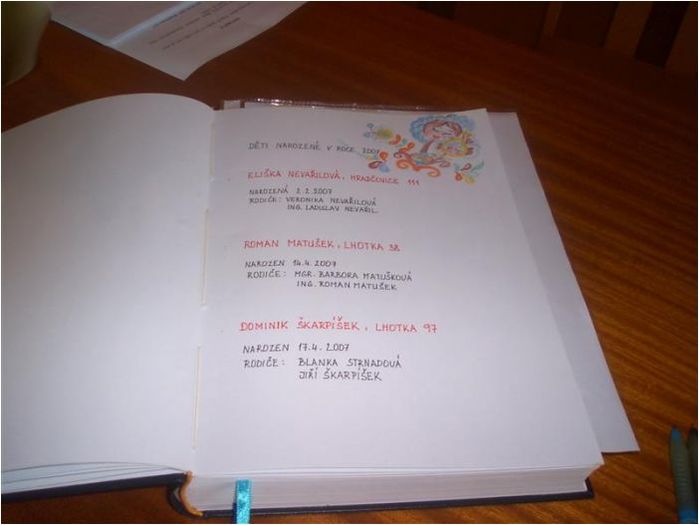 DĚTI NAROZENÉ V ROCE 2007
ELIŠKA NEVAŘILOVÁ, HRADČOVICE 111
NAROZENÁ 2.2.2007
RODIČE: VERONIKA NEVAŘILOVÁ
ING. LADISLAV NEVAŘIL
ROMAN MATUŠEK, LHOTKA 38
NAROZEN 14.4.2007
RODIČE: MGR. BARBORA MATUŠKOVÁ
ING. ROMAN MATUŠEK
DOMINIK ŠKARPÍŠEK, LHOTKA 97
NAROZEN 17.4.2007
RODIČE: BLANKA STRNADOVÁ
JIŘÍ ŠKARPÍŠEK